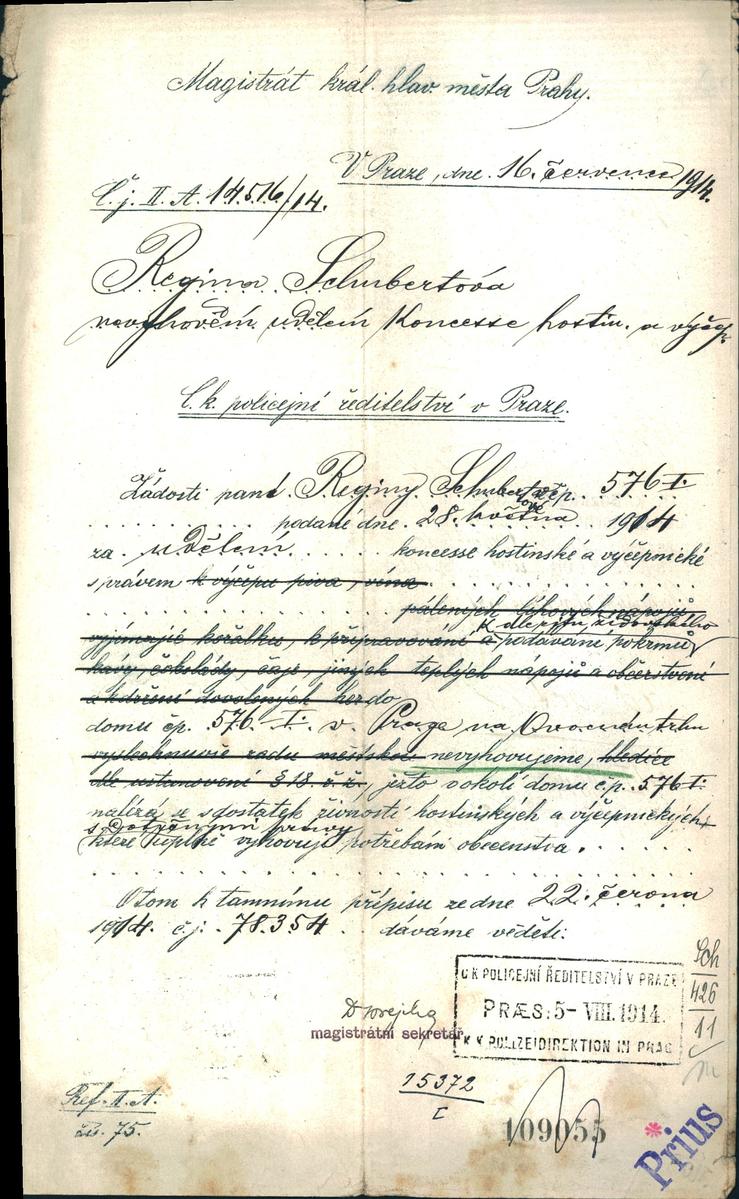 Magistrát král. hlav. města Prahy.
V Praze, dne 16. července 1914.
Č. j. II. A. 14516/14.
Regina Schubertova
nevyhovění udělení Koncesse hostin. a výčep.
C. k. policejní ředitelství v Praze.
Žádosti paní Reginy Schubertové čp. 576-I.
podané dne 28. května 1914
za udělení koncesse hostinské a výčepnické
s právem k výčepu piva, vína
pálených lihových nápojů
vyjímajíc kořalku, k připravování a podávání pokrmů
kávy, čokolády, čaje, jiných teplých nápojů a občerstvení
a k držení dovolených her do
domu čp. 576-I. v Praze na Ovocném trhu
vyslechnuvše radu městskou nevyhovujeme, hledíce
dle ustanovení § 18. ř. ž., ježto v okolí domu č. p. 576 I.
nalézá se s dostatek živností hostinských a výčepnických
s dotčenými právy
které úplně vyhovují potřebám obecenstva.
O tom k tamnímu přípisu ze dne 22. června
1914. č. j. 78.354 dáváme věděti.
C K POLICEJNÍ ŘEDITELSTVÍ V PRAZE
PRÆS: 5- VIII. 1914.
K. K POLIZEIDIREKTION IN PRAG
Sch
426
11
magistrátní sekretář
15372
I
Ref. II. A.
čís. 75.
109055
* Prius